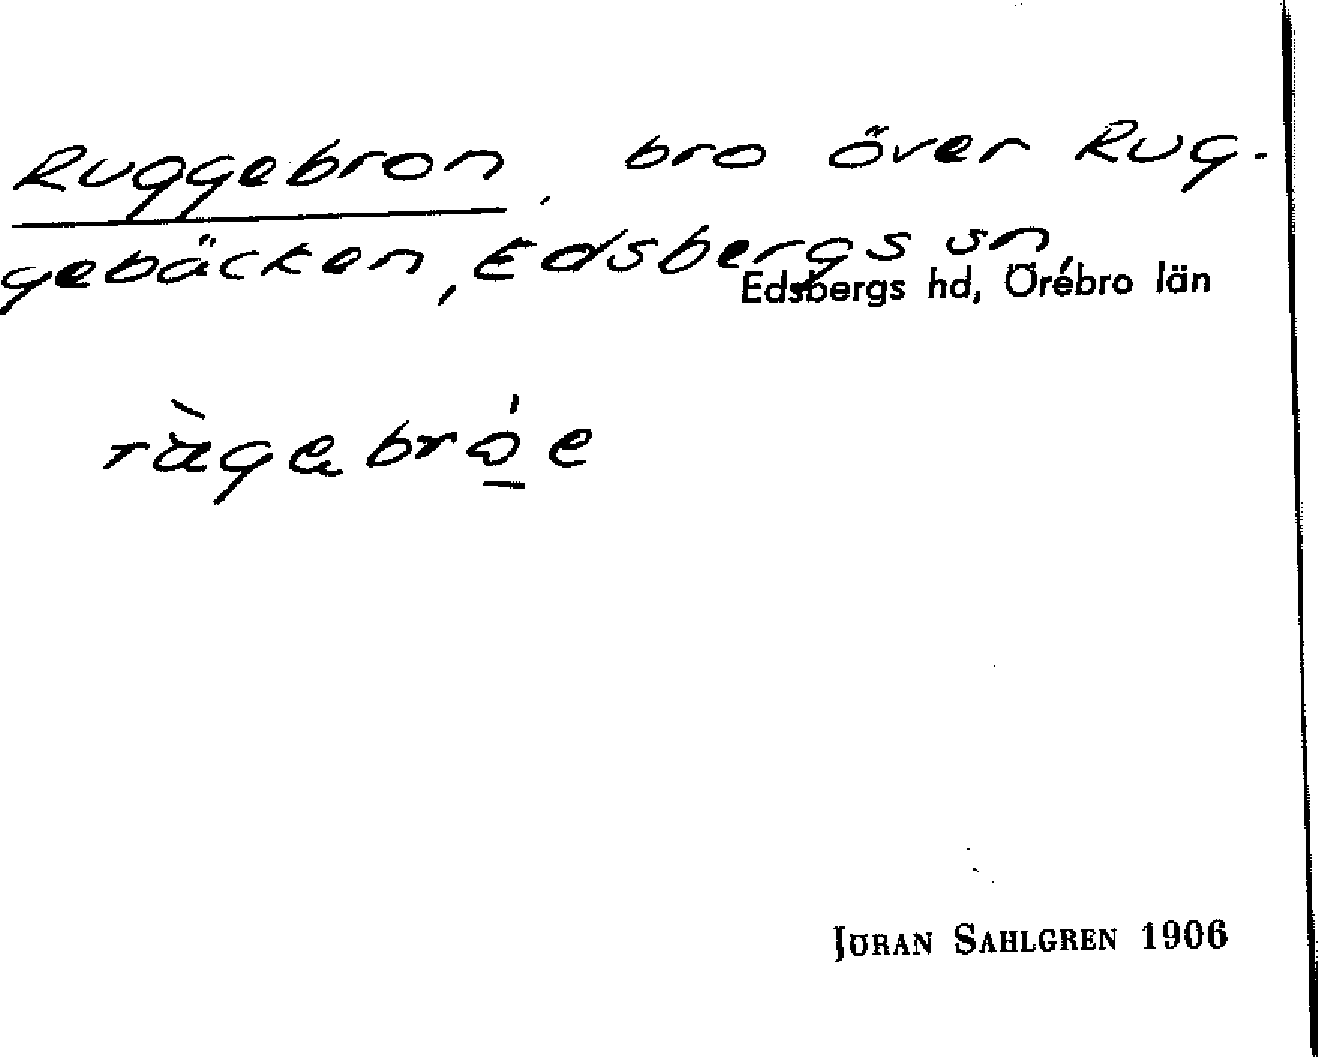 Ruggebron, bro över Rug-
gebäcken, Edsbergs sn,
Edsbergs hd, Örebro län
JÖRAN SAHLGREN 1906